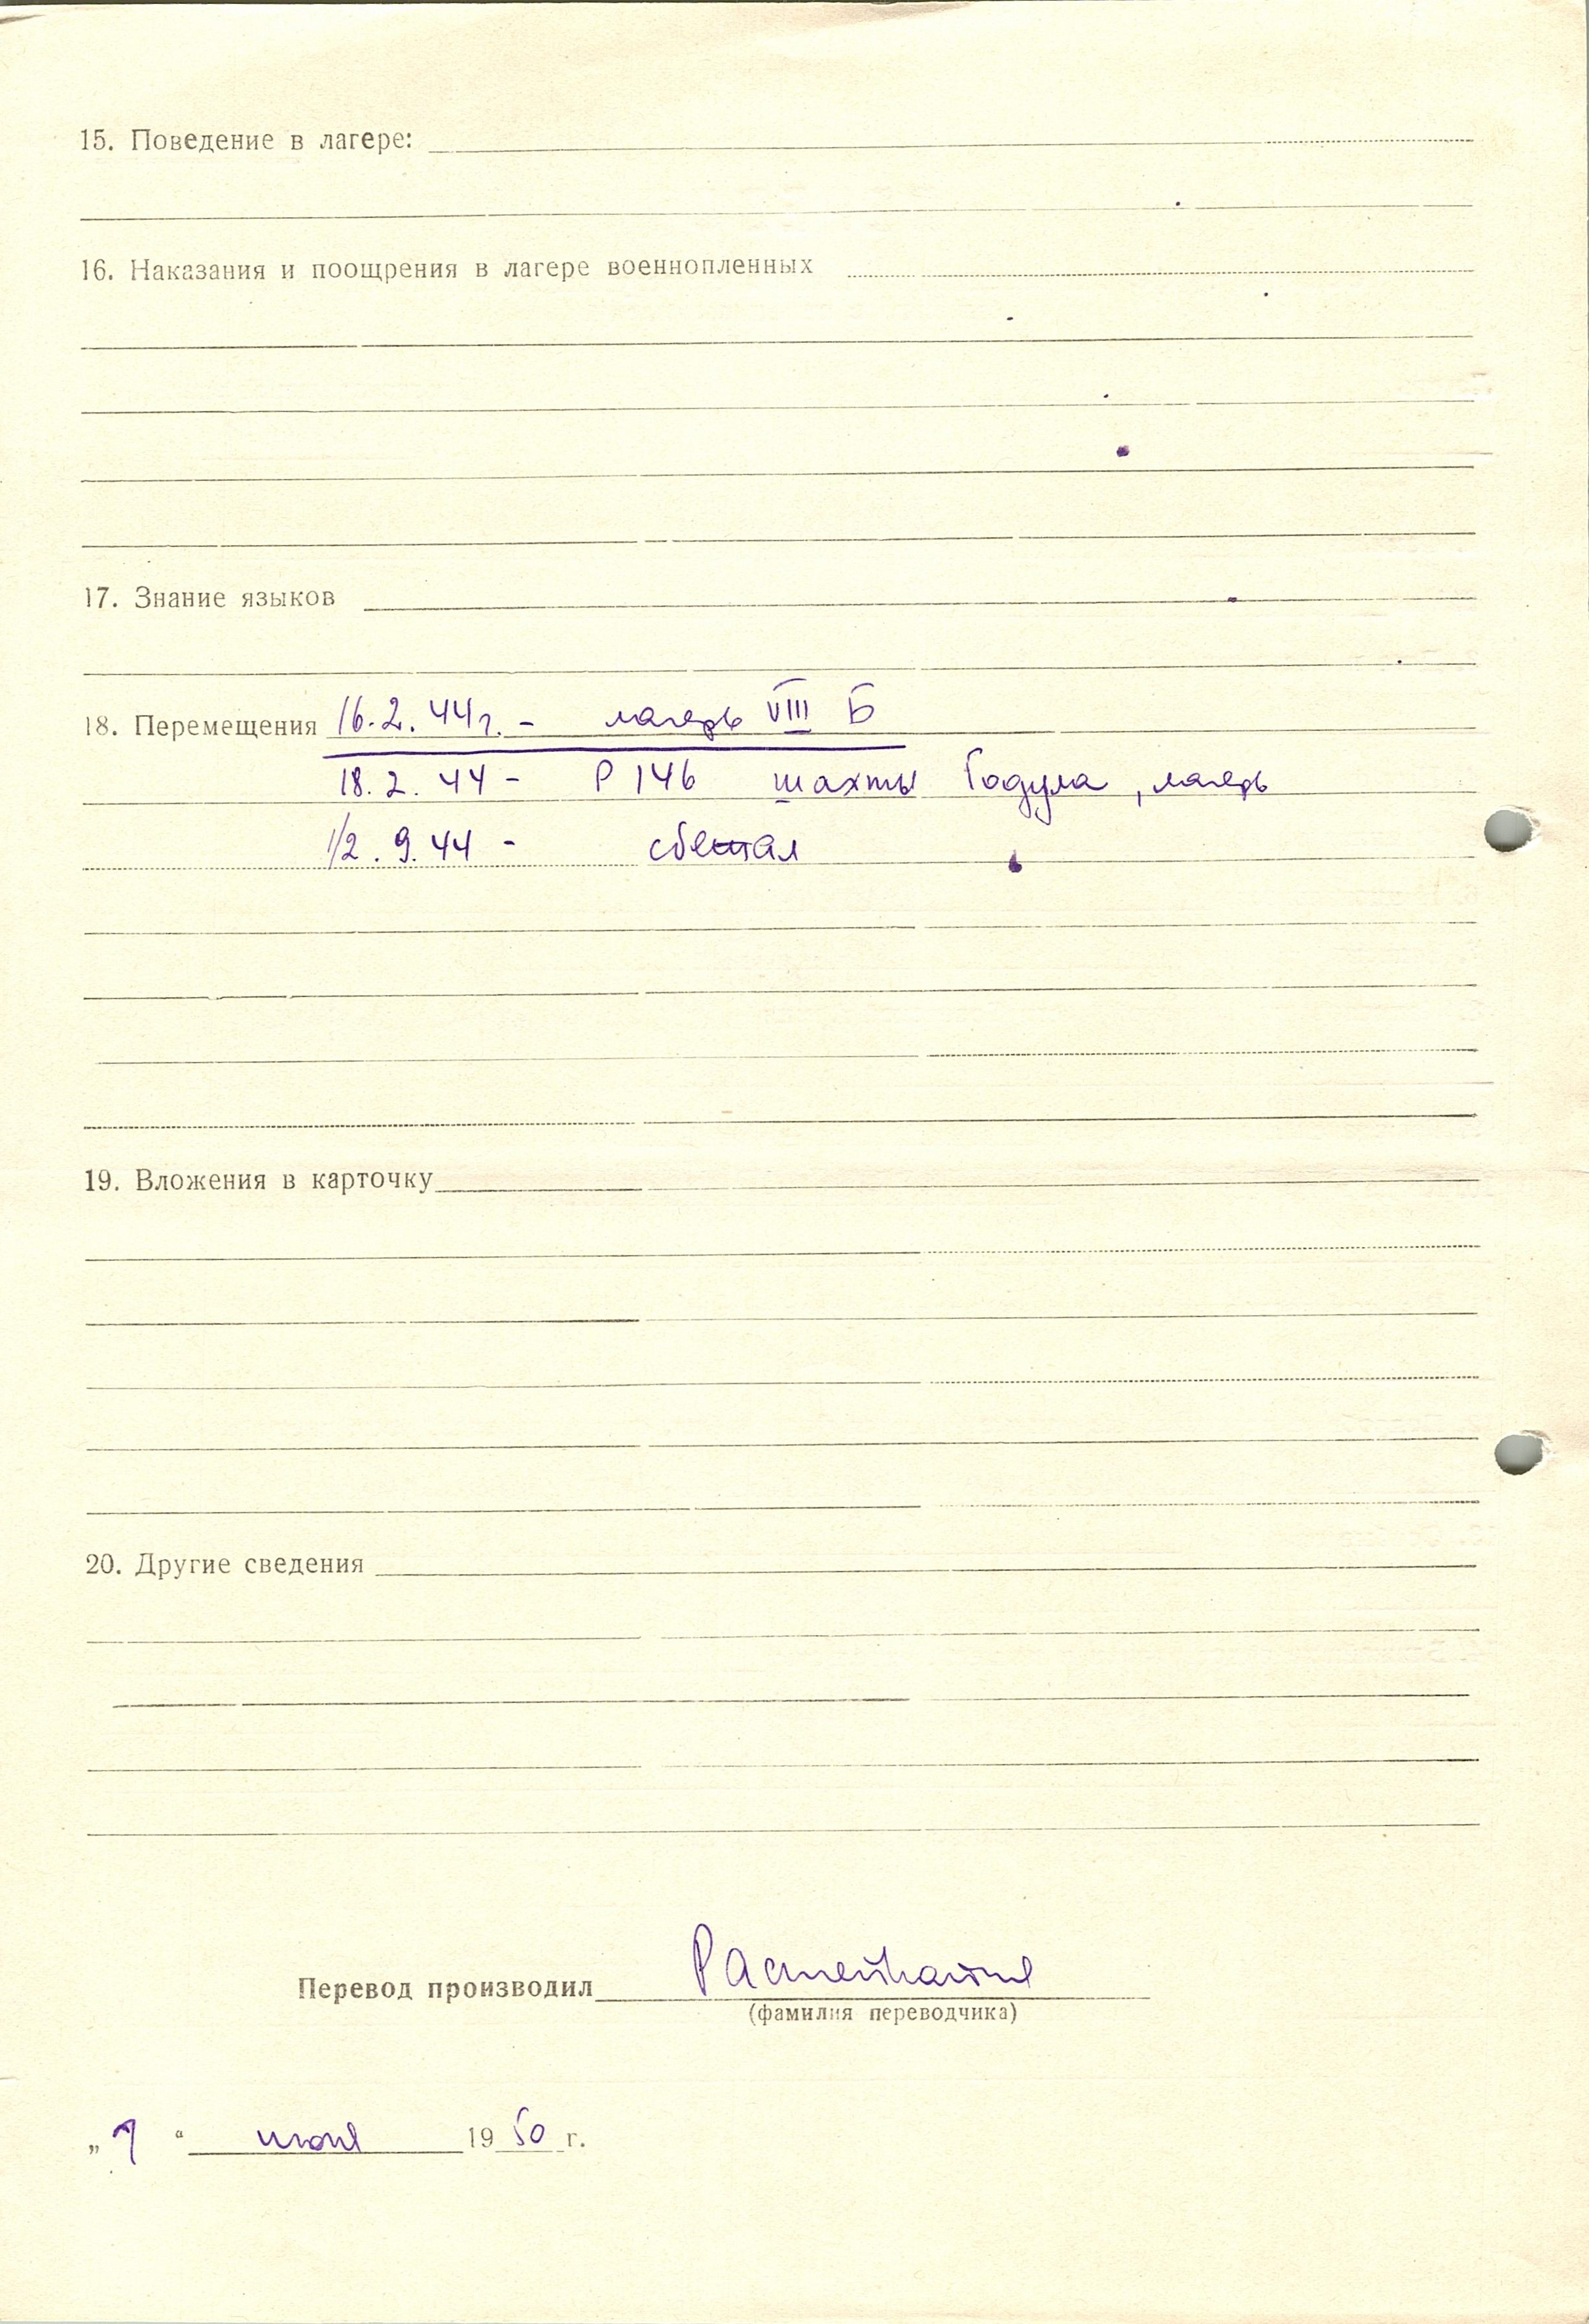 15. Поведение в лагере:
16. Наказания и поощрения в лагере военнопленных
17. Знание языков
18. Перемещения 16.2.44г. - лагерь VIII Б
18.2.44 - Р 146 шахты Годула, лагерь
12.9.44 - сбежал
19. Вложения в карточку
20. Другие сведения
Перевод производил
(фамилия переводчика)
" " 1950 г.